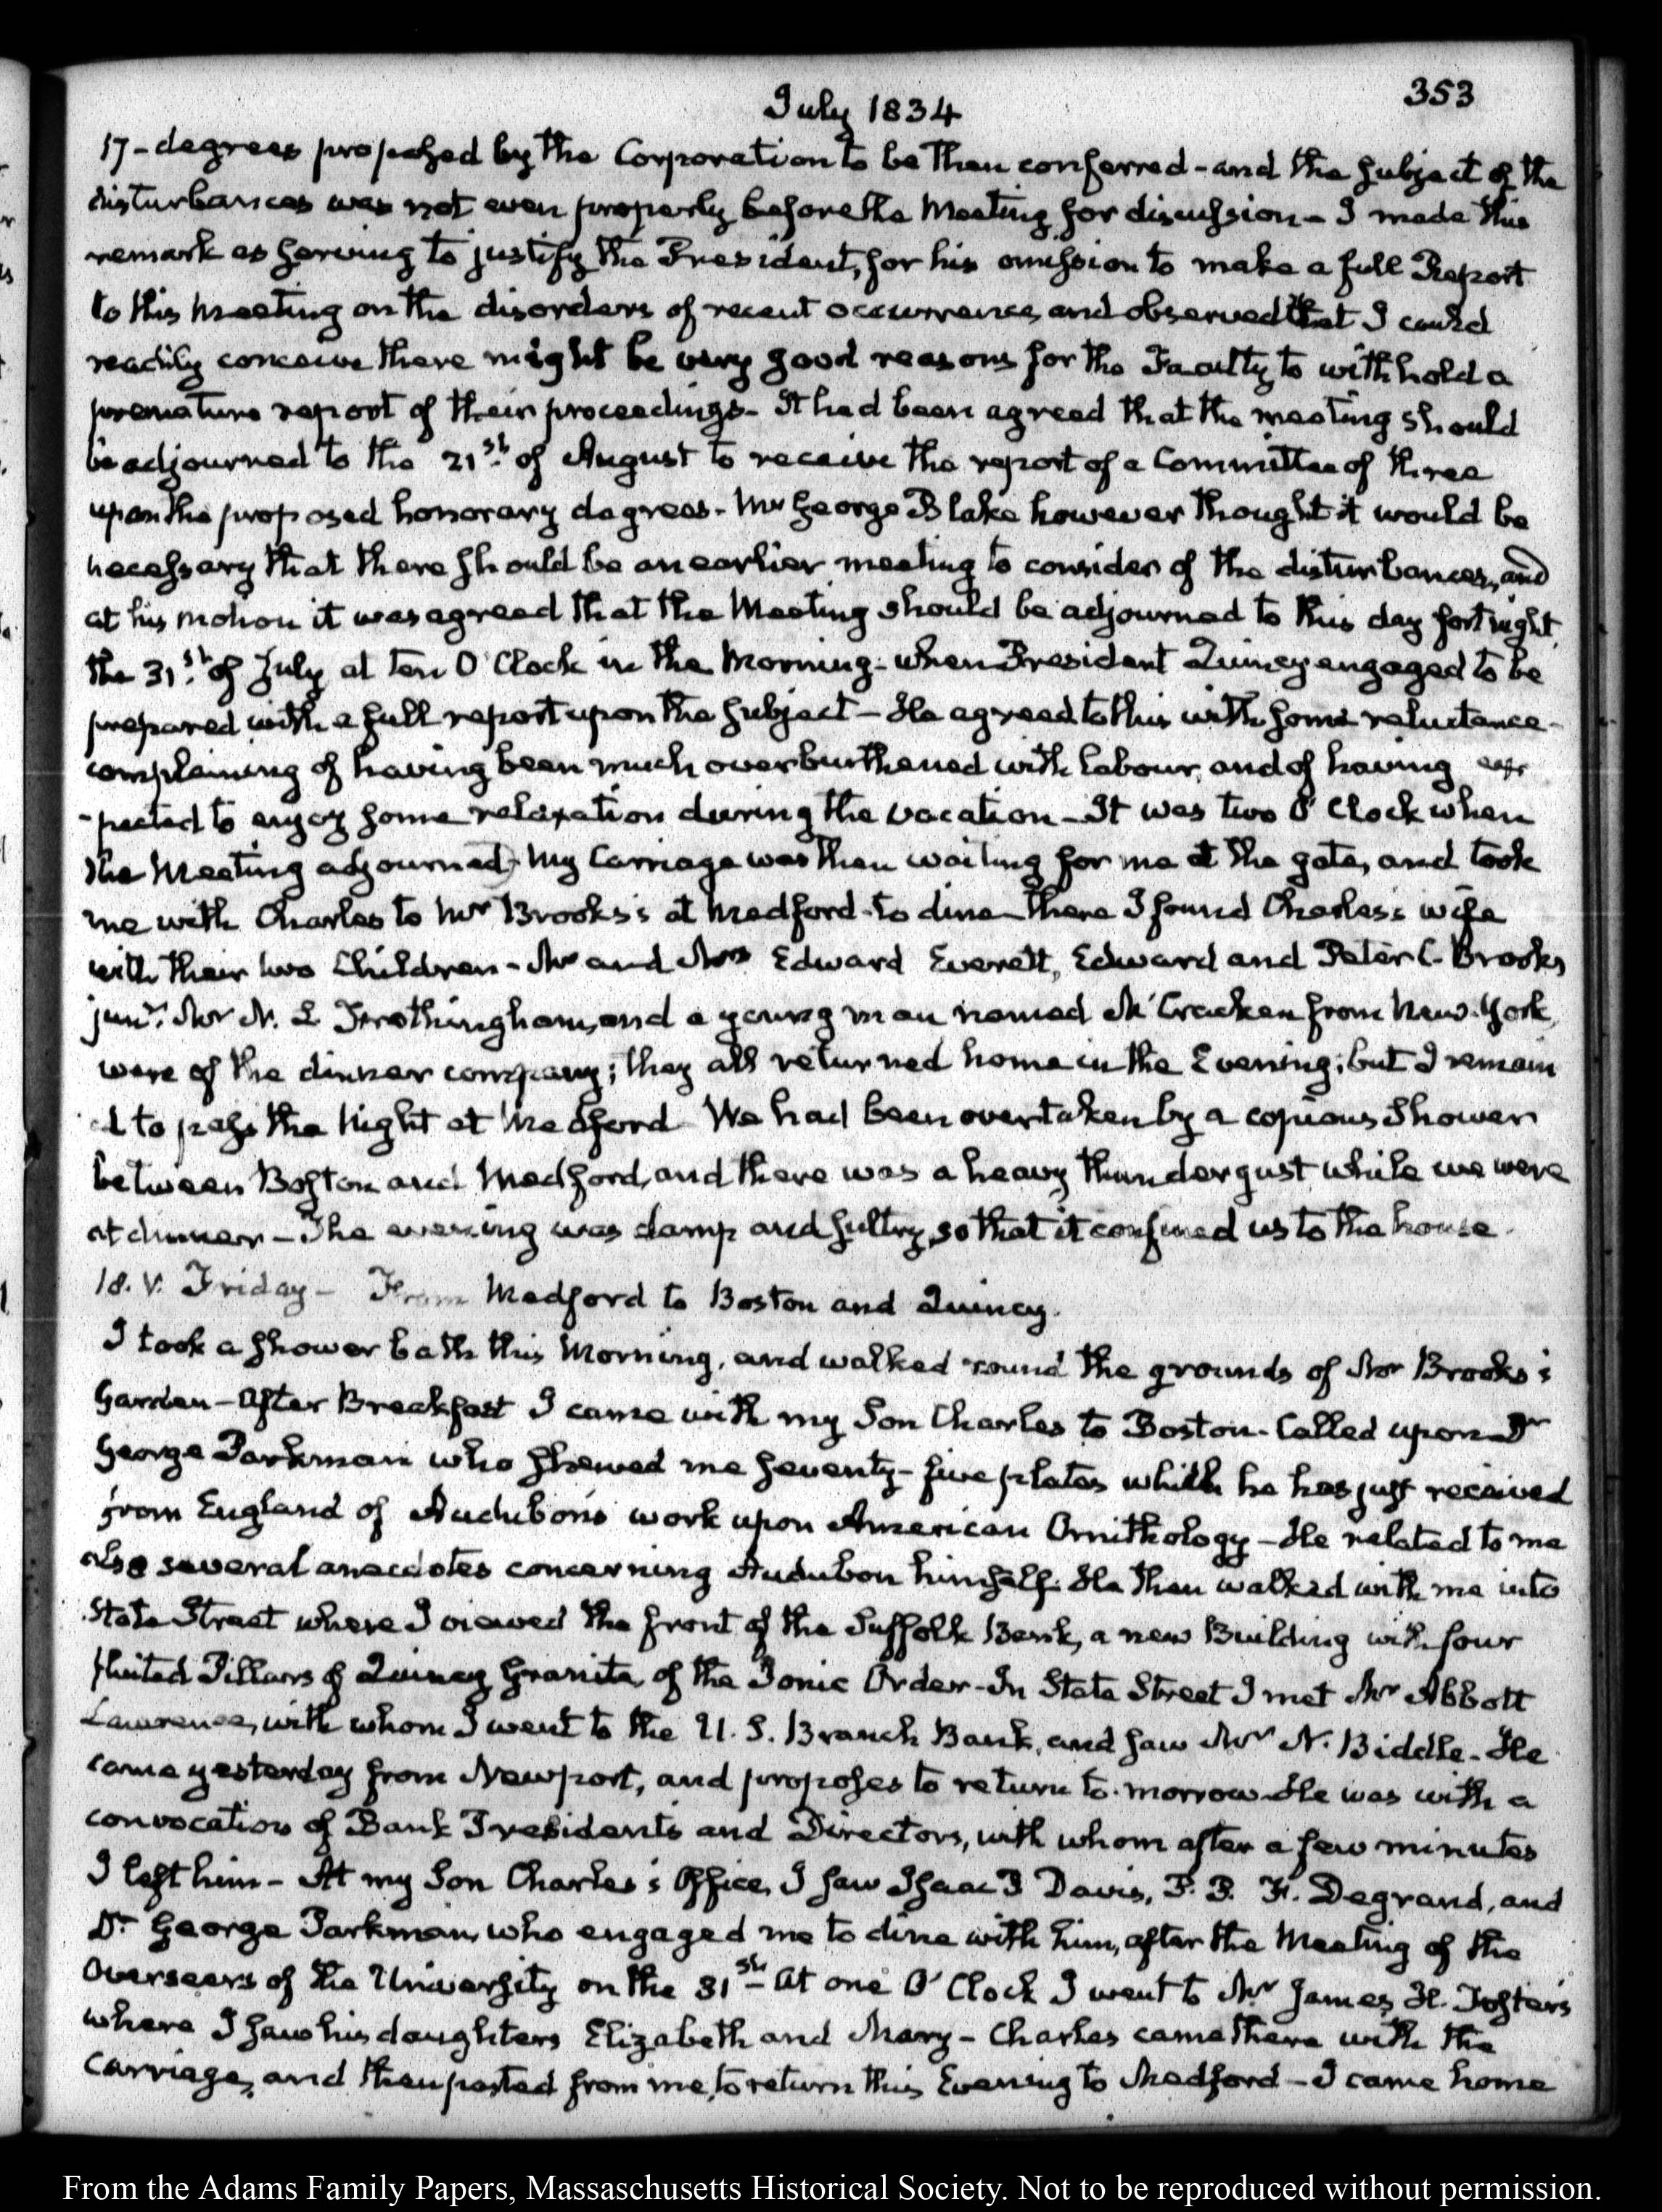 353
July 1834
17 - degrees proposed by the Corporation to be then conferred - and the subject of the
disturbances was not even properly before the Meeting for discussion - I made this
remark as serving to justify the President, for his omission to make a full Report
to this Meeting on the disorders of recent occurrence, and observed that I could
readily conceive there might be very good reasons for the Faculty to withhold a
premature report of their proceedings - It had been agreed that the meeting should
be adjourned to the 21st of August to receive the report of a Committee of three
upon the proposed honorary degrees - Mr George Blake however thought it would be
necessary that there should be an earlier meeting to consider of the disturbances, and
at his motion it was agreed that the Meeting should be adjourned to this day fortnight
the 31st of July at ten O'Clock in the Morning - when President Quincy engaged to be
prepared with a full report upon the subject - He agreed to this with some reluctance -
complaining of having been much overburthened with labour, and of having ex
-pected to enjoy some relaxation during the vacation - It was two O'Clock when
the Meeting adjourned - My Carriage was then waiting for me at the gate, and took
me with Charles to Mr Brooks's at Medford - to dine - There I found Charles's wife
with their two Children - Mr and Mrs Edward Everett, Edward and Peter C. Brooks
junr. Mr N. L. Frothingham, and a young man named McCracken from New-York,
were of the dinner company; they all returned home in the Evening; but I remain
ed to pass the Night at Medford. We had been overtaken by a copious Shower
between Boston and Medford, and there was a heavy thundergust while we were
at dinner - The evening was damp and sultry, so that it confined us to the house.
18. V. Friday - From Medford to Boston and Quincy.
I took a shower bath this Morning, and walked round the grounds of Mr Brooks's
Garden - After Breakfast I came with my Son Charles to Boston - Called upon Dr
George Parkman who shewed me seventy-five plates which he has just received
from England of Audubon's work upon American Ornithology - He related to me
also several anecdotes concerning Audubon himself. He then walked with me into
State Street where I viewed the front of the Suffolk Bank, a new Building with four
fluted Pillars of Quincy Granite, of the Ionic Order - In State Street I met Mr Abbott
Lawrence, with whom I went to the U. S. Branch Bank, and saw Mr N. Biddle - He
came yesterday from Newport, and proposes to return to-morrow. He was with a
convocation of Bank Presidents and Directors, with whom after a few minutes
I left him - At my Son Charles's Office, I saw Isaac P Davis, P. P. F. Degrand, and
Dr George Parkman, who engaged me to dine with him, after the Meeting of the
Overseers of the University on the 31st - At one O'Clock I went to Mr James H. Foster's
where I saw his daughters Elizabeth and Mary - Charles came there with the
Carriage, and then parted from me, to return this Evening to Medford - I came home
From the Adams Family Papers, Massachusetts Historical Society. Not to be reproduced without permission.